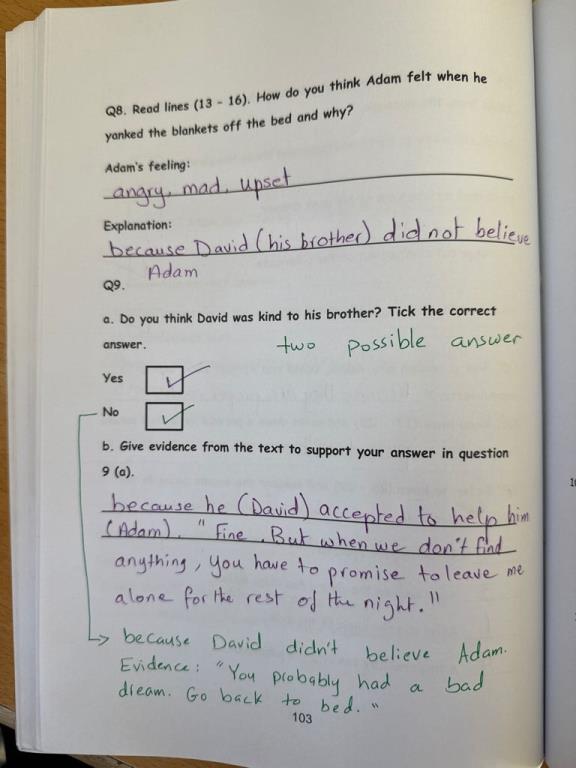 Q8. Read lines (13 - 16). How do you think Adam felt when he
yanked the blankets off the bed and why?
Adam's feeling:
angry, mad, upset
Explanation:
because David (his brother) did not believe
Adam
Q9.
a. Do you think David was kind to his brother? Tick the correct
answer.
two possible answer
Yes
No
b. Give evidence from the text to support your answer in question
9 (a).
because he (David) accepted to help him
(Adam). "Fine. But when we don't find
anything, you have to promise to leave me
alone for the rest of the night."
because David didn't believe Adam.
Evidence: "You probably had a bad
dream. Go back to bed."
103